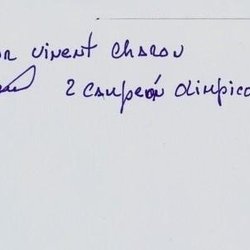 or vinent charon
2 campeón olimpico